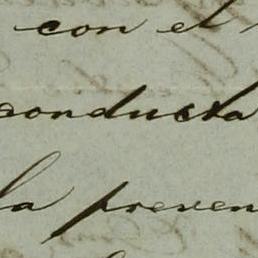 con el
conducta
la preven